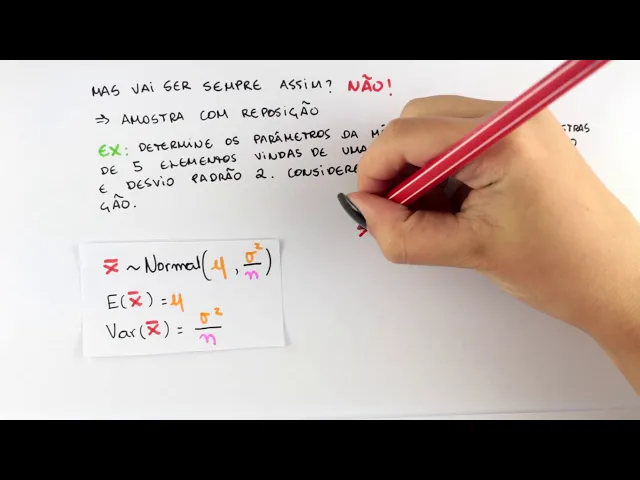 MAS VAI SER SEMPRE ASSIM? NÃO!
⇒ AMOSTRA COM REPOSIÇÃO
EX: DETERMINE OS PARÂMETROS DA
DE 5 ELEMENTOS VINDAS DE UMA
E DESVIO PADRÃO 2. CONSIDERE
ÇÃO.
x̄ ~ Normal(μ, σ²/n)
E(x̄) = μ
Var(x̄) = σ²/n